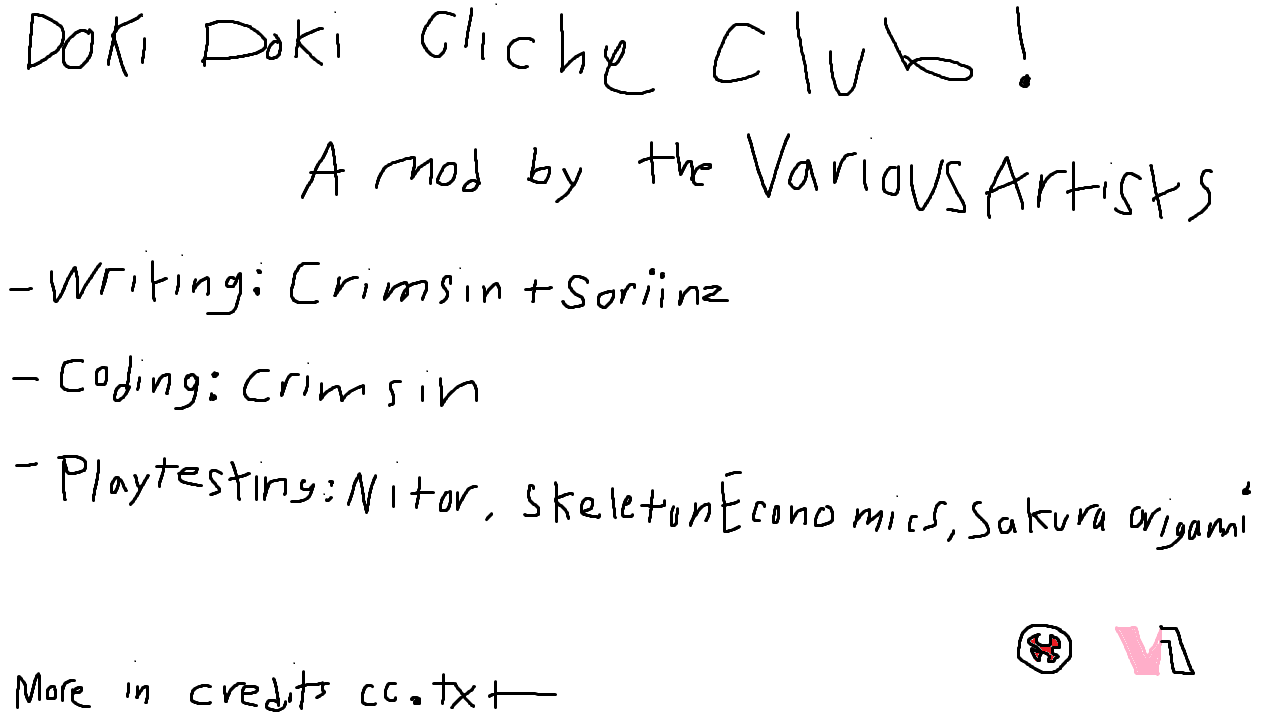 Doki Doki Cliche Club!
A mod by the Various Artists
- Writing: Crimsin + Soriinz
- Coding: Crimsin
- Playtesting: Nitor, SkeletonEconomics, Sakura origami
More in credits cc.txt